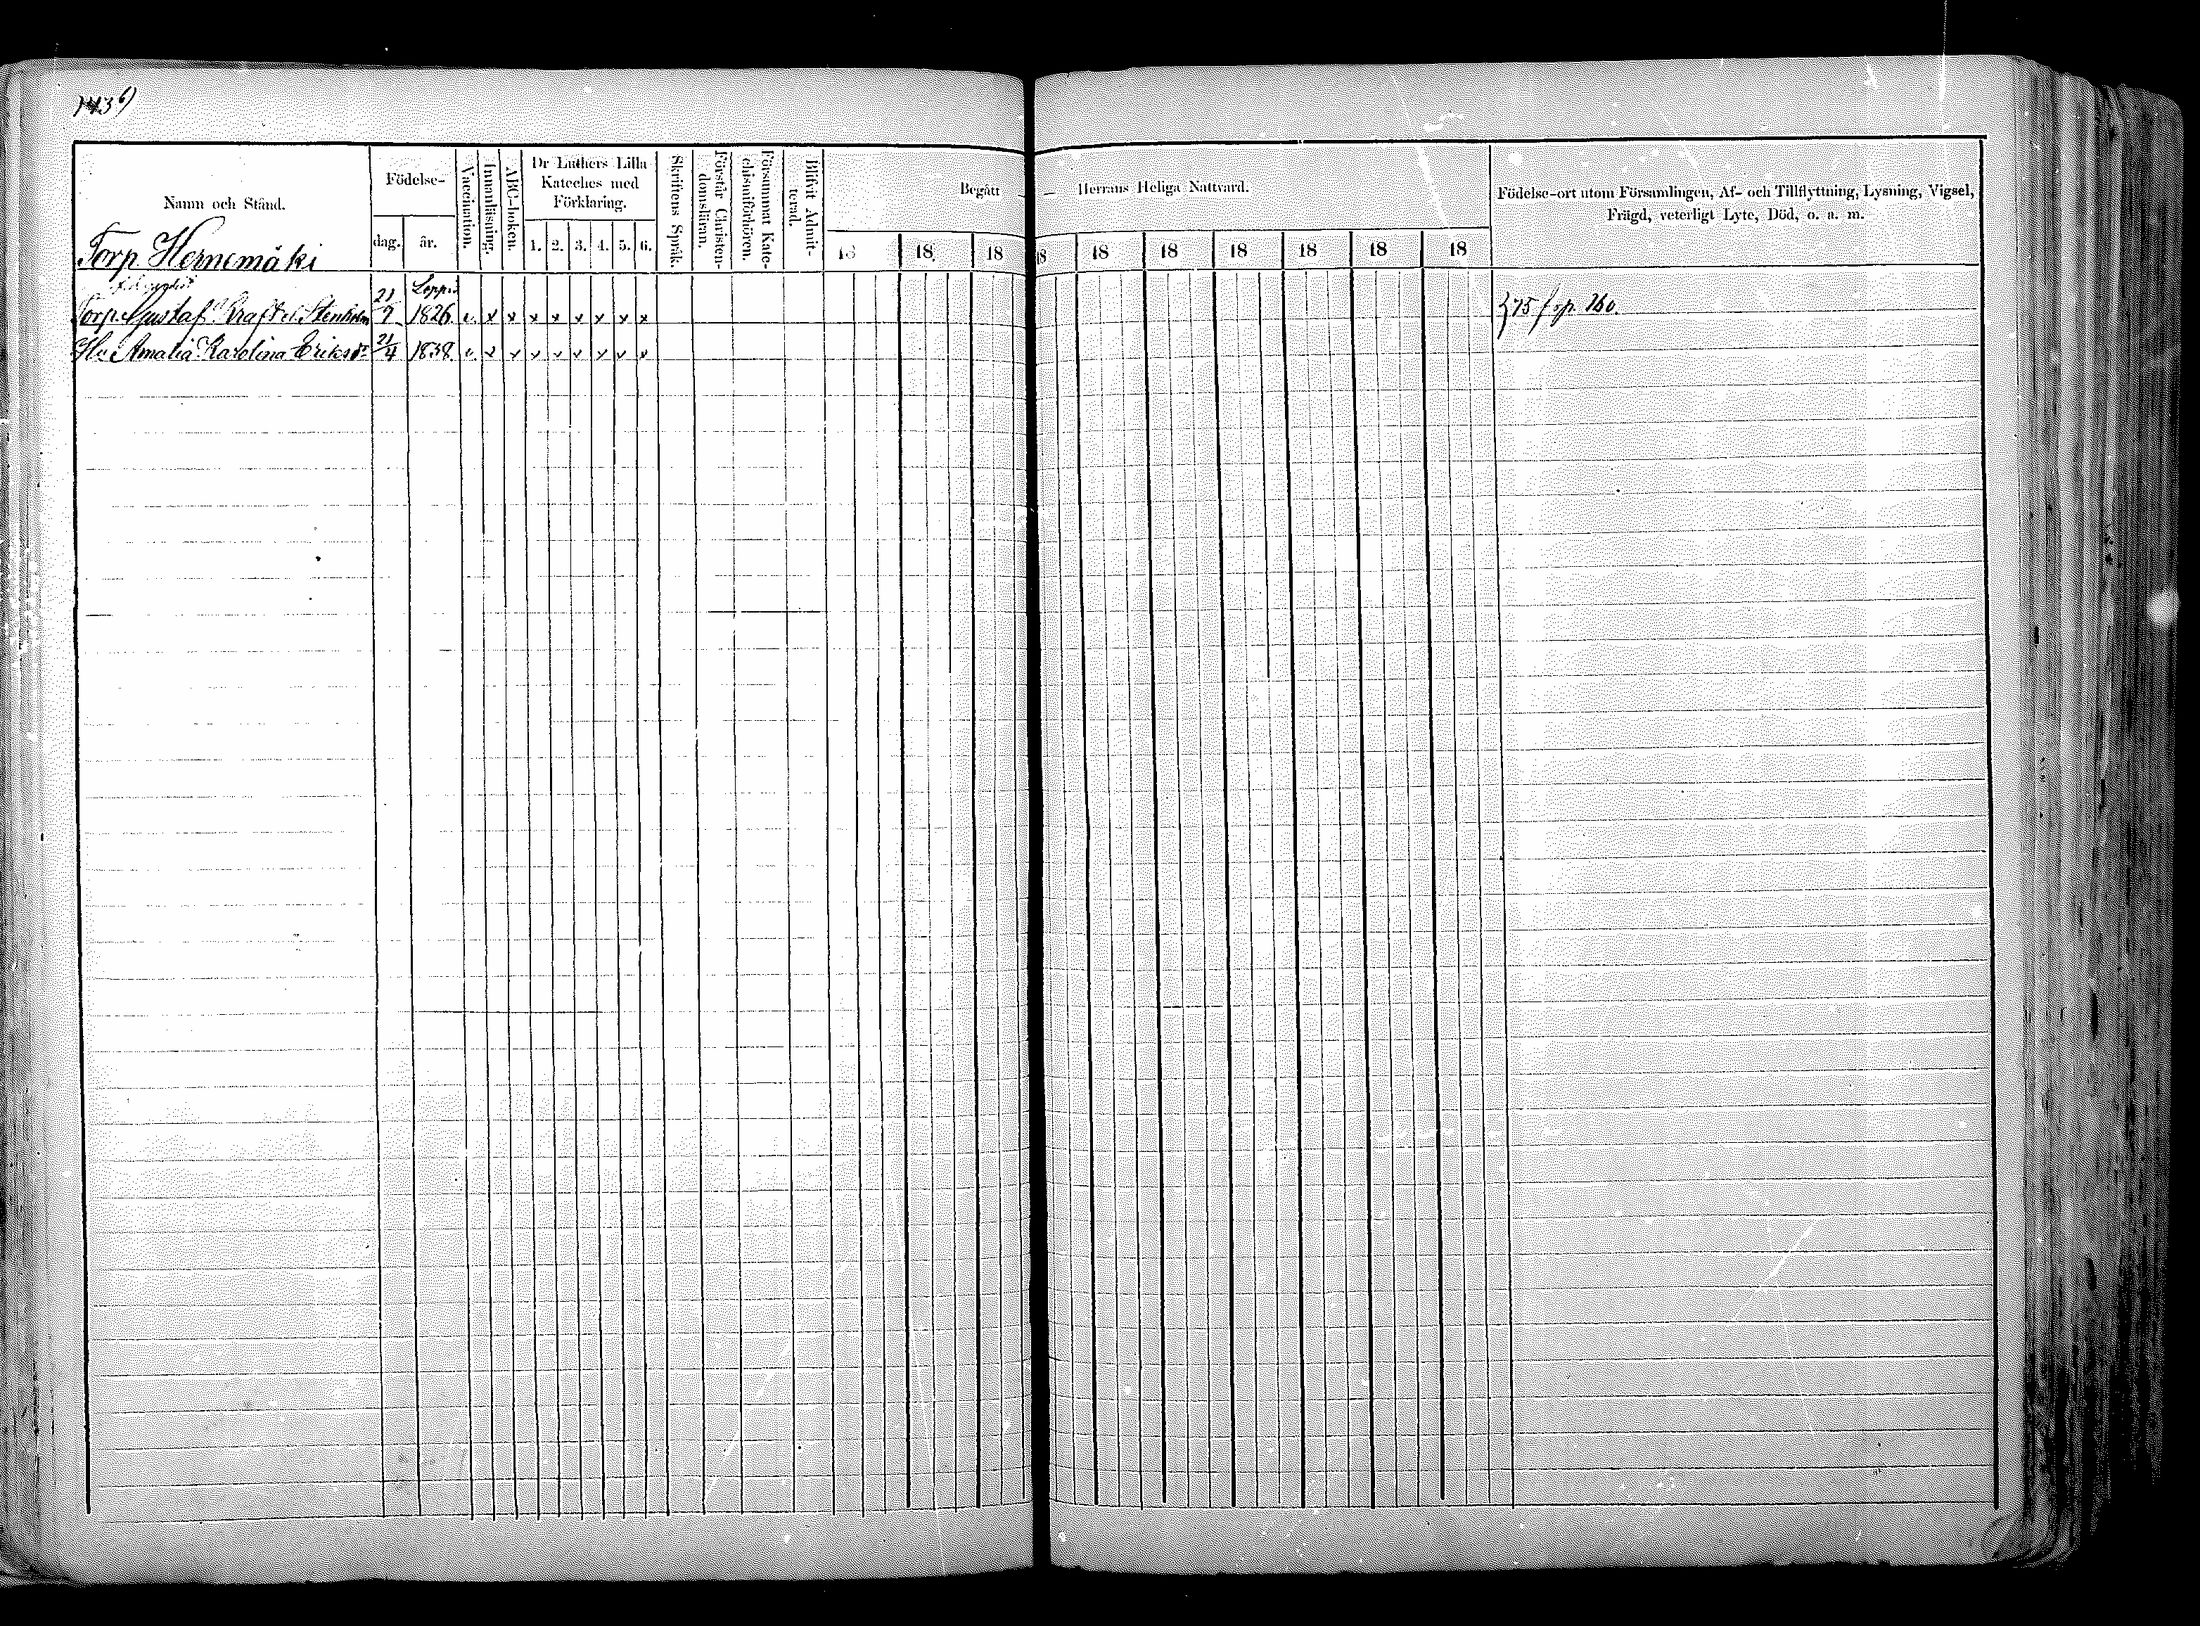 Namn och Stånd.
Torp Hernemäki
Födelse-
dag.
år.
Vaccination.
Innanläsning.
ABC-boken.
Dr Luthers Lilla
Kateches med
Förklaring.
1. 2. 3. 4. 5. 6.
Skriftens Språk.
Förstår Christen-
domsläran.
Försummat Kate-
chismiförhören.
Blifvit Admit-
terad.
Begått
Herrans Heliga Nattvard.
18 18 18 18 18 18 18 18 18 18
Födelse-ort utom Församlingen, Af- och Tillflyttning, Lysning, Vigsel,
Frägd, veterligt Lyte, Död, o. a. m.
Loppi
Torp. Gustaf Stenholm 21/7 1826 v x x x x x x x x
75 frp. 260.
Hu Amalia Karolina Eriksdr 21/4 1838 v v v v v v v v v